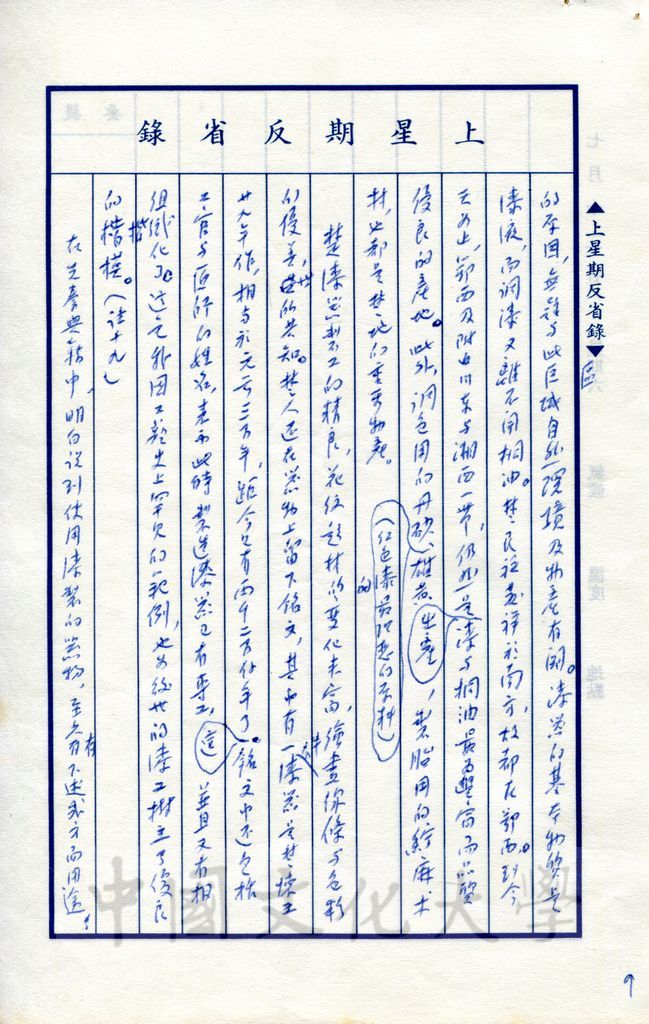 上星期反省錄
▲上星期反省錄▼
區
的原因，無疑與此區域自然環境及物產有關。漆器的基本物質是
漆液，而調漆又離不開桐油。楚民族發祥於南方，故都在鄂西。到今
天為止，鄂西及附近川東與湘西一帶，仍然是漆與桐油最為豐富而品質
優良的產地。此外，調色用的丹砂、雄黃生產，製胎用的紵麻木
材，也都是楚地的重要物產。
（紅色漆最理想的原料）
的
楚漆器製工的精良，花紋題材的變化豐富，繪畫線條與色彩
的優美，世所共知。楚人還在器物上留下銘文，其中有一漆器是楚
廿九年作，相當於元前三百年，距今已有兩千二百餘年了。銘文中還包括
工官與匠師的姓名，表示此時製造漆器已有專工，這並且又有相
組織化了。這是我國工藝史上罕見的範例，也為後世的漆工樹立了優良
的楷模。（註十九）
在先秦典籍中，明白說到使用漆製的器物，至今有下述幾方面用途：
9
中國文化大學